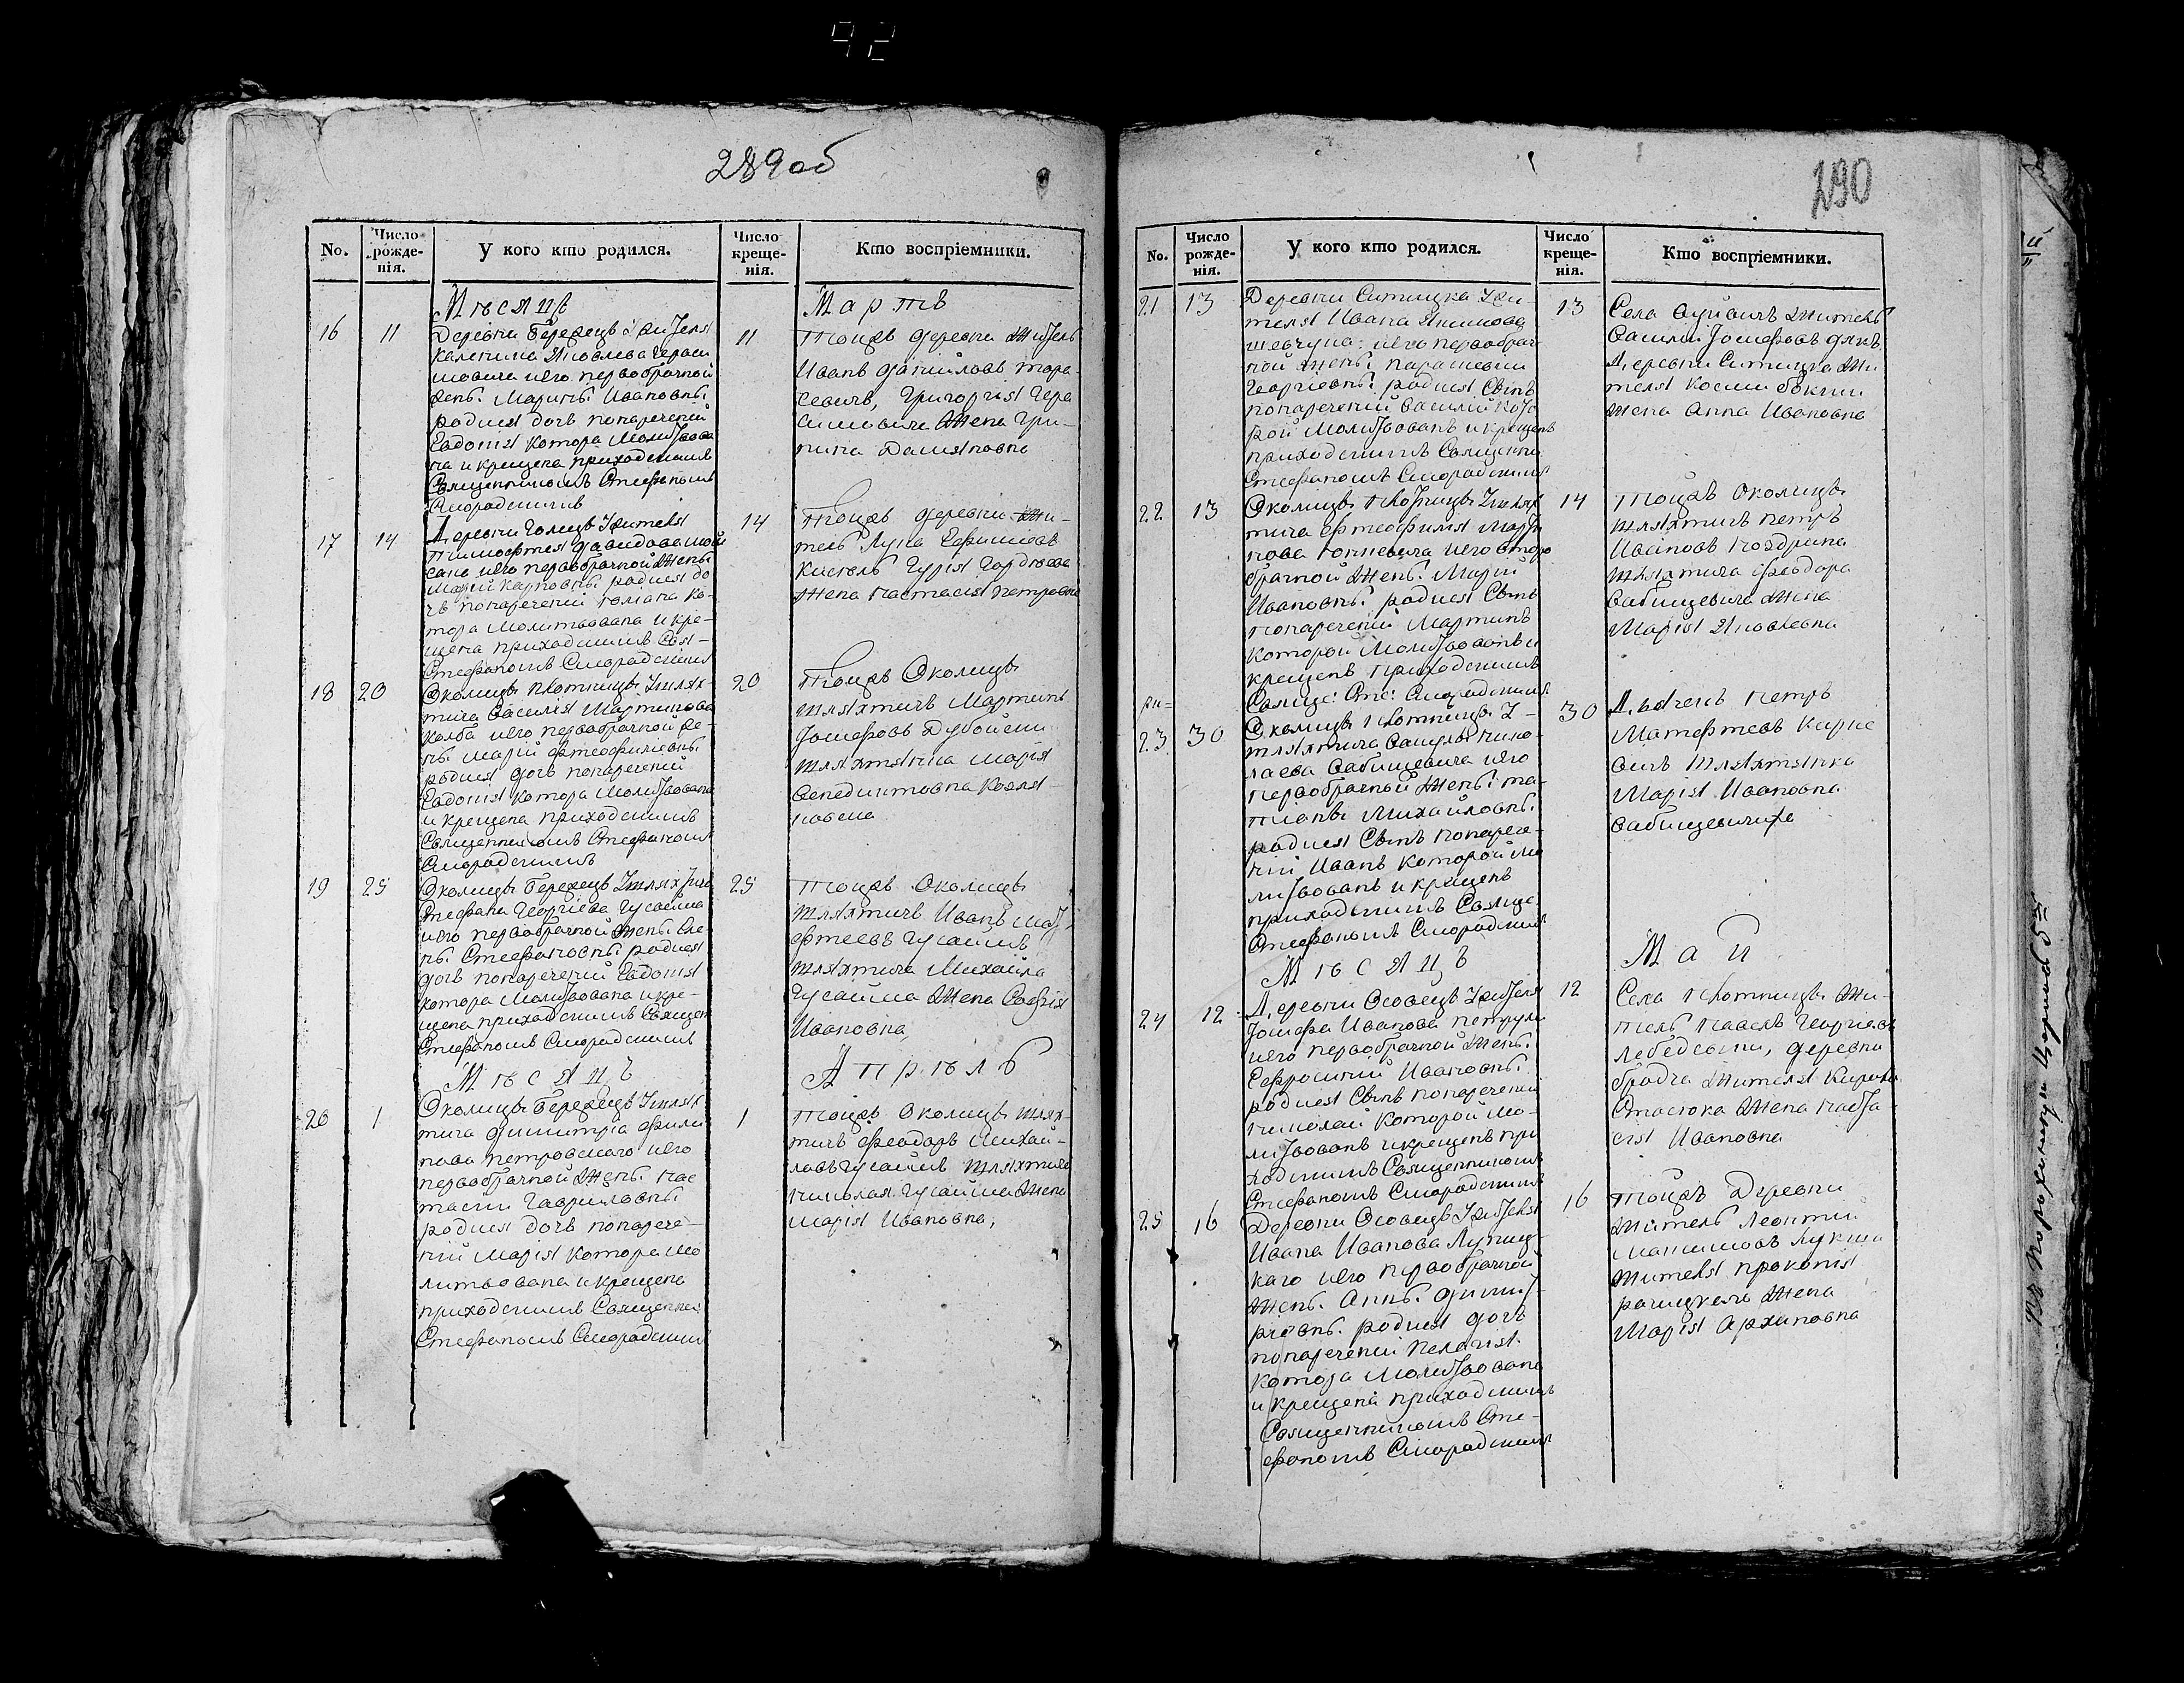 289об
No.
Число рожде-нія.
У кого кто родился.
Число креще-нія.
Кто воспріемники.
Мѣсяцъ
Мартъ
16
11
Деревни Бережцъ Жителя
Яковлева Гераси
мовича иего первобрачной
жены Марины Ивановны
родися дочь нонареченій
Евдокія котора молитвова
на и крещена приходскимъ
Священникомъ Стефаномъ
Сморадскимъ
11
Тоижъ деревни Житель
Иванъ Даниловъ Тара
севичь, Григорія Гера
симовича жена Гри-
пина Дамяновна
17
14
Деревни Голецъ Жителя
Тимофтея Давидова
иего первобрачной жены
Марій Карповны родися до
чь нонареченій Юліана ко-
тора молитвована и кре-
щена приходскимъ Свя-
Стефаномъ Сморадскимъ
14
Тоижъ деревни Жи-
тель Лука Ефимовъ
Кисель Гурія Гордюева
Жена Настасія Петровна
18
20
Околицы Плотницы Шлях-
тича Василія Мартинова
Колба иего первобрачной же-
ны Марій Фтеофиловны
родися дочь нонареченій
Евдокія котора молитвована
и крещена приходскимъ
Священникомъ Стефаномъ
Сморадскимъ
20
Тоижъ Околицы
шляхтичъ Мартинъ
Іосифовъ Дубойски
шляхтянка Марія
Венедиктовна Козля-
ковска
19
25
Околицы Бережцъ Шляхтича
Стефана Георгіева Гусайма
иего первобрачной жены Еле-
ны Стефановны родися
дочь нонареченій Евдокія
котора молитвована и кре-
щена приходскимъ Священ
Стефаномъ Сморадскимъ
25
Тоижъ Околицы
шляхтичъ Иванъ Мат-
фтеевъ Гусаимъ
шляхтича Михайла
Гусайма Жена Софія
Ивановна,
Мѣсяцъ
Апрѣль
20
1
Околицы Бережцъ Шлях-
тича Димитріа Фили
пова Петровскаго иего
первобрачной жены Нас
тасіи Гавриловны
родися дочь нонарече-
ній Марія котора мо
литвована и крещена
приходскимъ Священни:
Стефаномъ Сморадскимъ
1
Тоижъ Околицы шлях-
тичъ Феодоръ Михай-
ловъ Гусаимъ шляхтича
Николая Гусайма Жена
Марія Ивановна,
290
No.
Число рожде-нія.
У кого кто родился.
Число креще-нія.
Кто воспріемники.
21
13
Деревни Ситицка Жи-
теля Ивана Якимова
Шевчука иего первобрач-
ной жены Парасквіи
Георгіевны родися Сынъ
нонареченій Василій кото
рой молитвованъ и крещенъ
приходскимъ Священни:
Стефаномъ Сморадскимъ
13
Села Житель
Василій Іосифовъ дякъ
Деревни Ситицка Жи
теля Косми Бокши
жена Анна Ивановна
22
13
Околицы Плотницы Шлях
тича Фтеофиля Марти
нова иего второ
брачной жены Марій
Ивановны родися Сынъ
нонареченій Мартинъ
которой молитвованъ и
крещенъ приходскимъ
Священ: Сте: Сморадскимъ
14
Тоижъ Околицы
шляхтичъ Петръ
Ивановъ Ноздрина
шляхтича Феодора
Сабицевича жена
Марія Яковлевна
23
30
Околицы Плотницы Ш-
ляхтича Нико-
лаева Сабицевича иего
первобрачной жены Та-
тіаны Михайловны
родися Сынъ нонарече-
ній Иванъ которой мо
литвованъ и крещенъ
приходскимъ Священ
Стефаномъ Сморадскимъ
30
Петръ
Матфтеевъ Карпо
вичъ шляхтянка
Марія Ивановна
Сабицевичиха
Мѣсяцъ
Май
24
12
Деревни Осовецъ Жителя
Іосифа Иванова Петруки
иего первобрачной жены
Ефросиній Ивановны
родися Сынъ нонареченій
Николай которой мо-
литвованъ и крещенъ при
ходскимъ Священникомъ
Стефаномъ Сморадскимъ
12
Села Плотницы Жи-
тель Павелъ Георгіевъ
Лебедевичъ, деревни
Бродча Жителя Кирила
Стасюка Жена Настa
сія Ивановна
25
16
Деревни Осовецъ Жителя
Ивана Иванова Лупиц-
каго иего первобрачной
Жены Анны Димит-
ріевны родися дочь
нонареченій Пелагія
котора молитвована
и крещена приходскимъ
Священникомъ Сте-
фаномъ Сморадскимъ
16
Тоижъ Деревни
Житель Леонтій
Максимовъ Лукша
жителя Прокопія
жена
Марія Архиповна